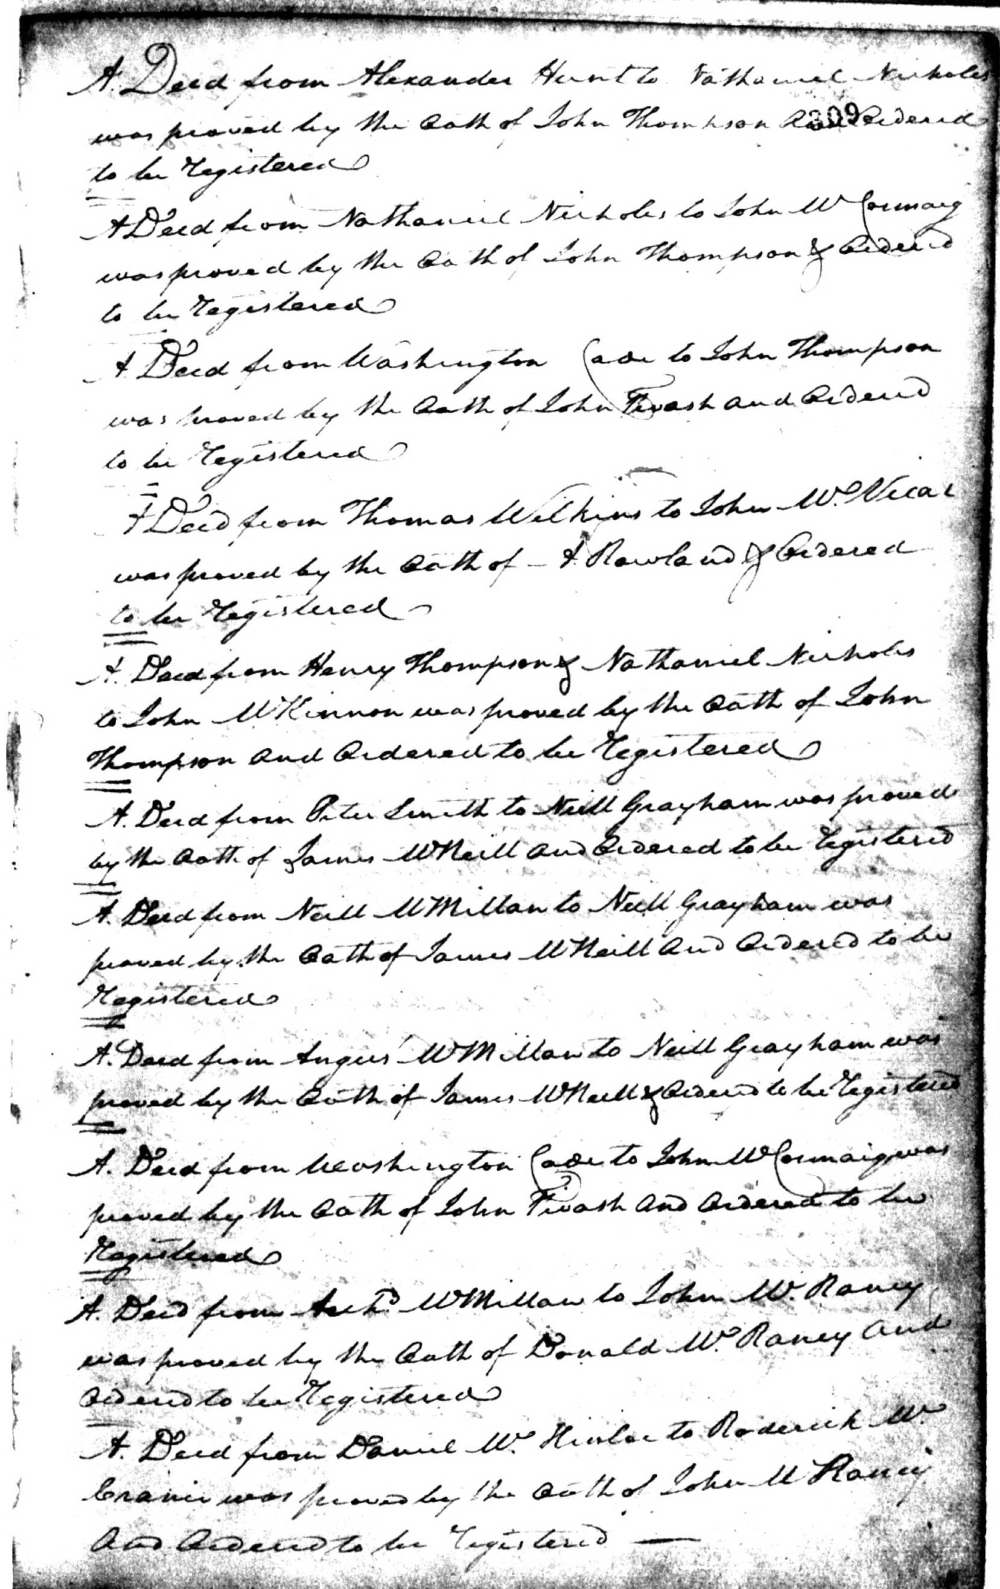 A. Deed from Alexander Hunt to Nathaniel Nicholes
was proved by the Oath of John Thompson Ordered
309
to be Registered
A Deed from Nathaniel Nicholes to John Mc Cormaig
was proved by the Oath of John Thompson & Ordered
to be Registered
A Deed from Washington Cade to John Thompson
was proved by the Oath of John Fivash and Ordered
to be Registered
A Deed from Thomas Wilkins to John Mc. Vicar
was proved by the Oath of A Rowland & Ordered
to be Registered
A. Deed from Henry Thompson & Nathaniel Nicholes
to John McKinnon was proved by the Oath of John
Thompson and Ordered to be Registered
A. Deed from Peter Smith to Neill Grayham was proved
by the Oath of James McNeill and Ordered to be Registered
A. Deed from Neill McMillan to Neill Grayham was
proved by the Oath of James McNeill and Ordered to be
Registered
A. Deed from Angus McMillan to Neill Grayham was
proved by the Oath of James McNeill & Ordered to be Registered
A. Deed from Washington Cade to John McCormaig was
proved by the Oath of John Fivash and Ordered to be
Registered
A. Deed from Archd McMillan to John Mc. Raney
was proved by the Oath of Donald Mc. Raney and
Ordered to be Registered
A. Deed from Daniel Mc. to Roderick Mc
was proved by the Oath of John Mc Raney
And Ordered to be Registered